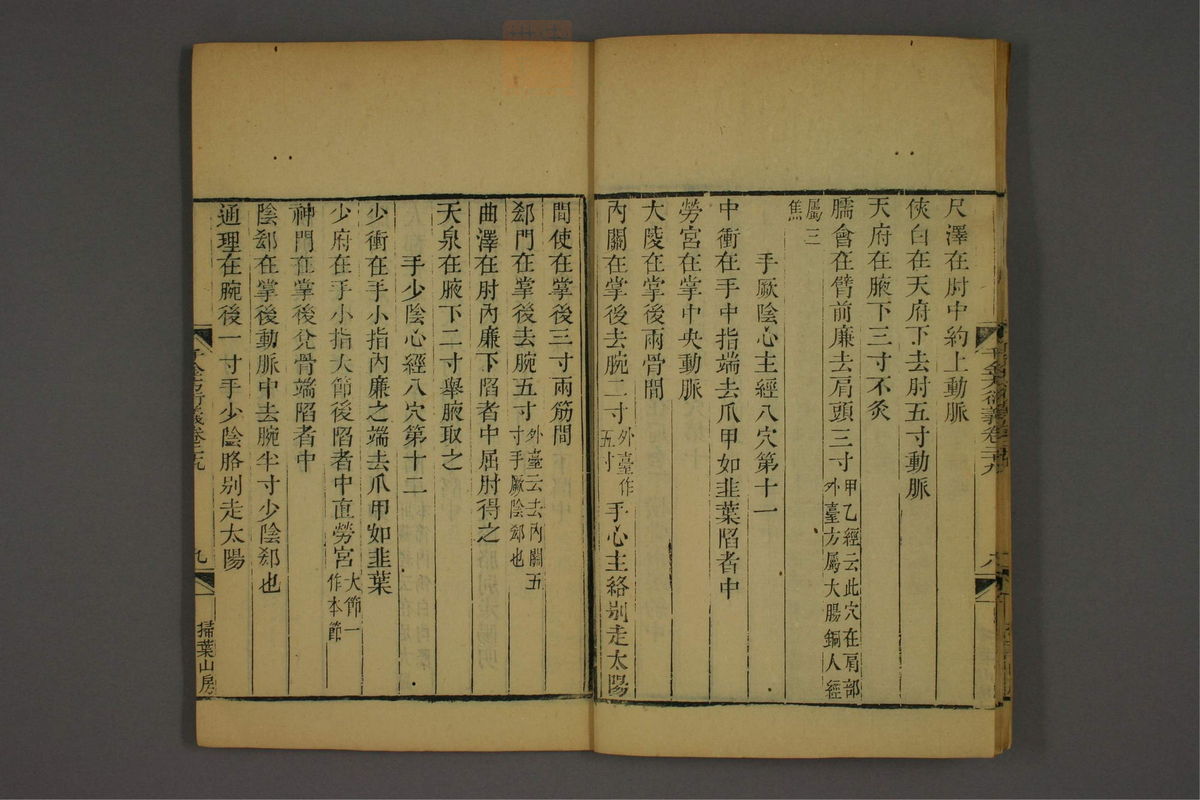 尺澤在肘中約上動脈
俠白在天府下去肘五寸動脈
天府在腋下三寸不灸
臑會在臂前廉去肩頭三寸甲乙經云此穴在肩部外臺方屬大腸銅人經
屬三焦
手厥陰心主經八穴第十一
中衝在手中指端去爪甲如韭葉陷者中
勞宮在掌中央動脈
大陵在掌後兩骨間
內關在掌後去腕二寸外臺作五寸手心主絡别走太陽
間使在掌後三寸兩筋間
郄門在掌後去腕五寸外臺云去內關五寸手厥陰郄也
曲澤在肘內廉下陷者中屈肘得之
天泉在腋下二寸舉腋取之
手少陰心經八穴第十二
少衝在手小指內廉之端去爪甲如韭葉
少府在手小指大節後陷者中直勞宮大節一作本節
神門在掌後兌骨端陷者中
陰郄在掌後動脈中去腕半寸少陰郄也
通理在腕後一寸手少陰胳别走太陽
九
掃葉山房